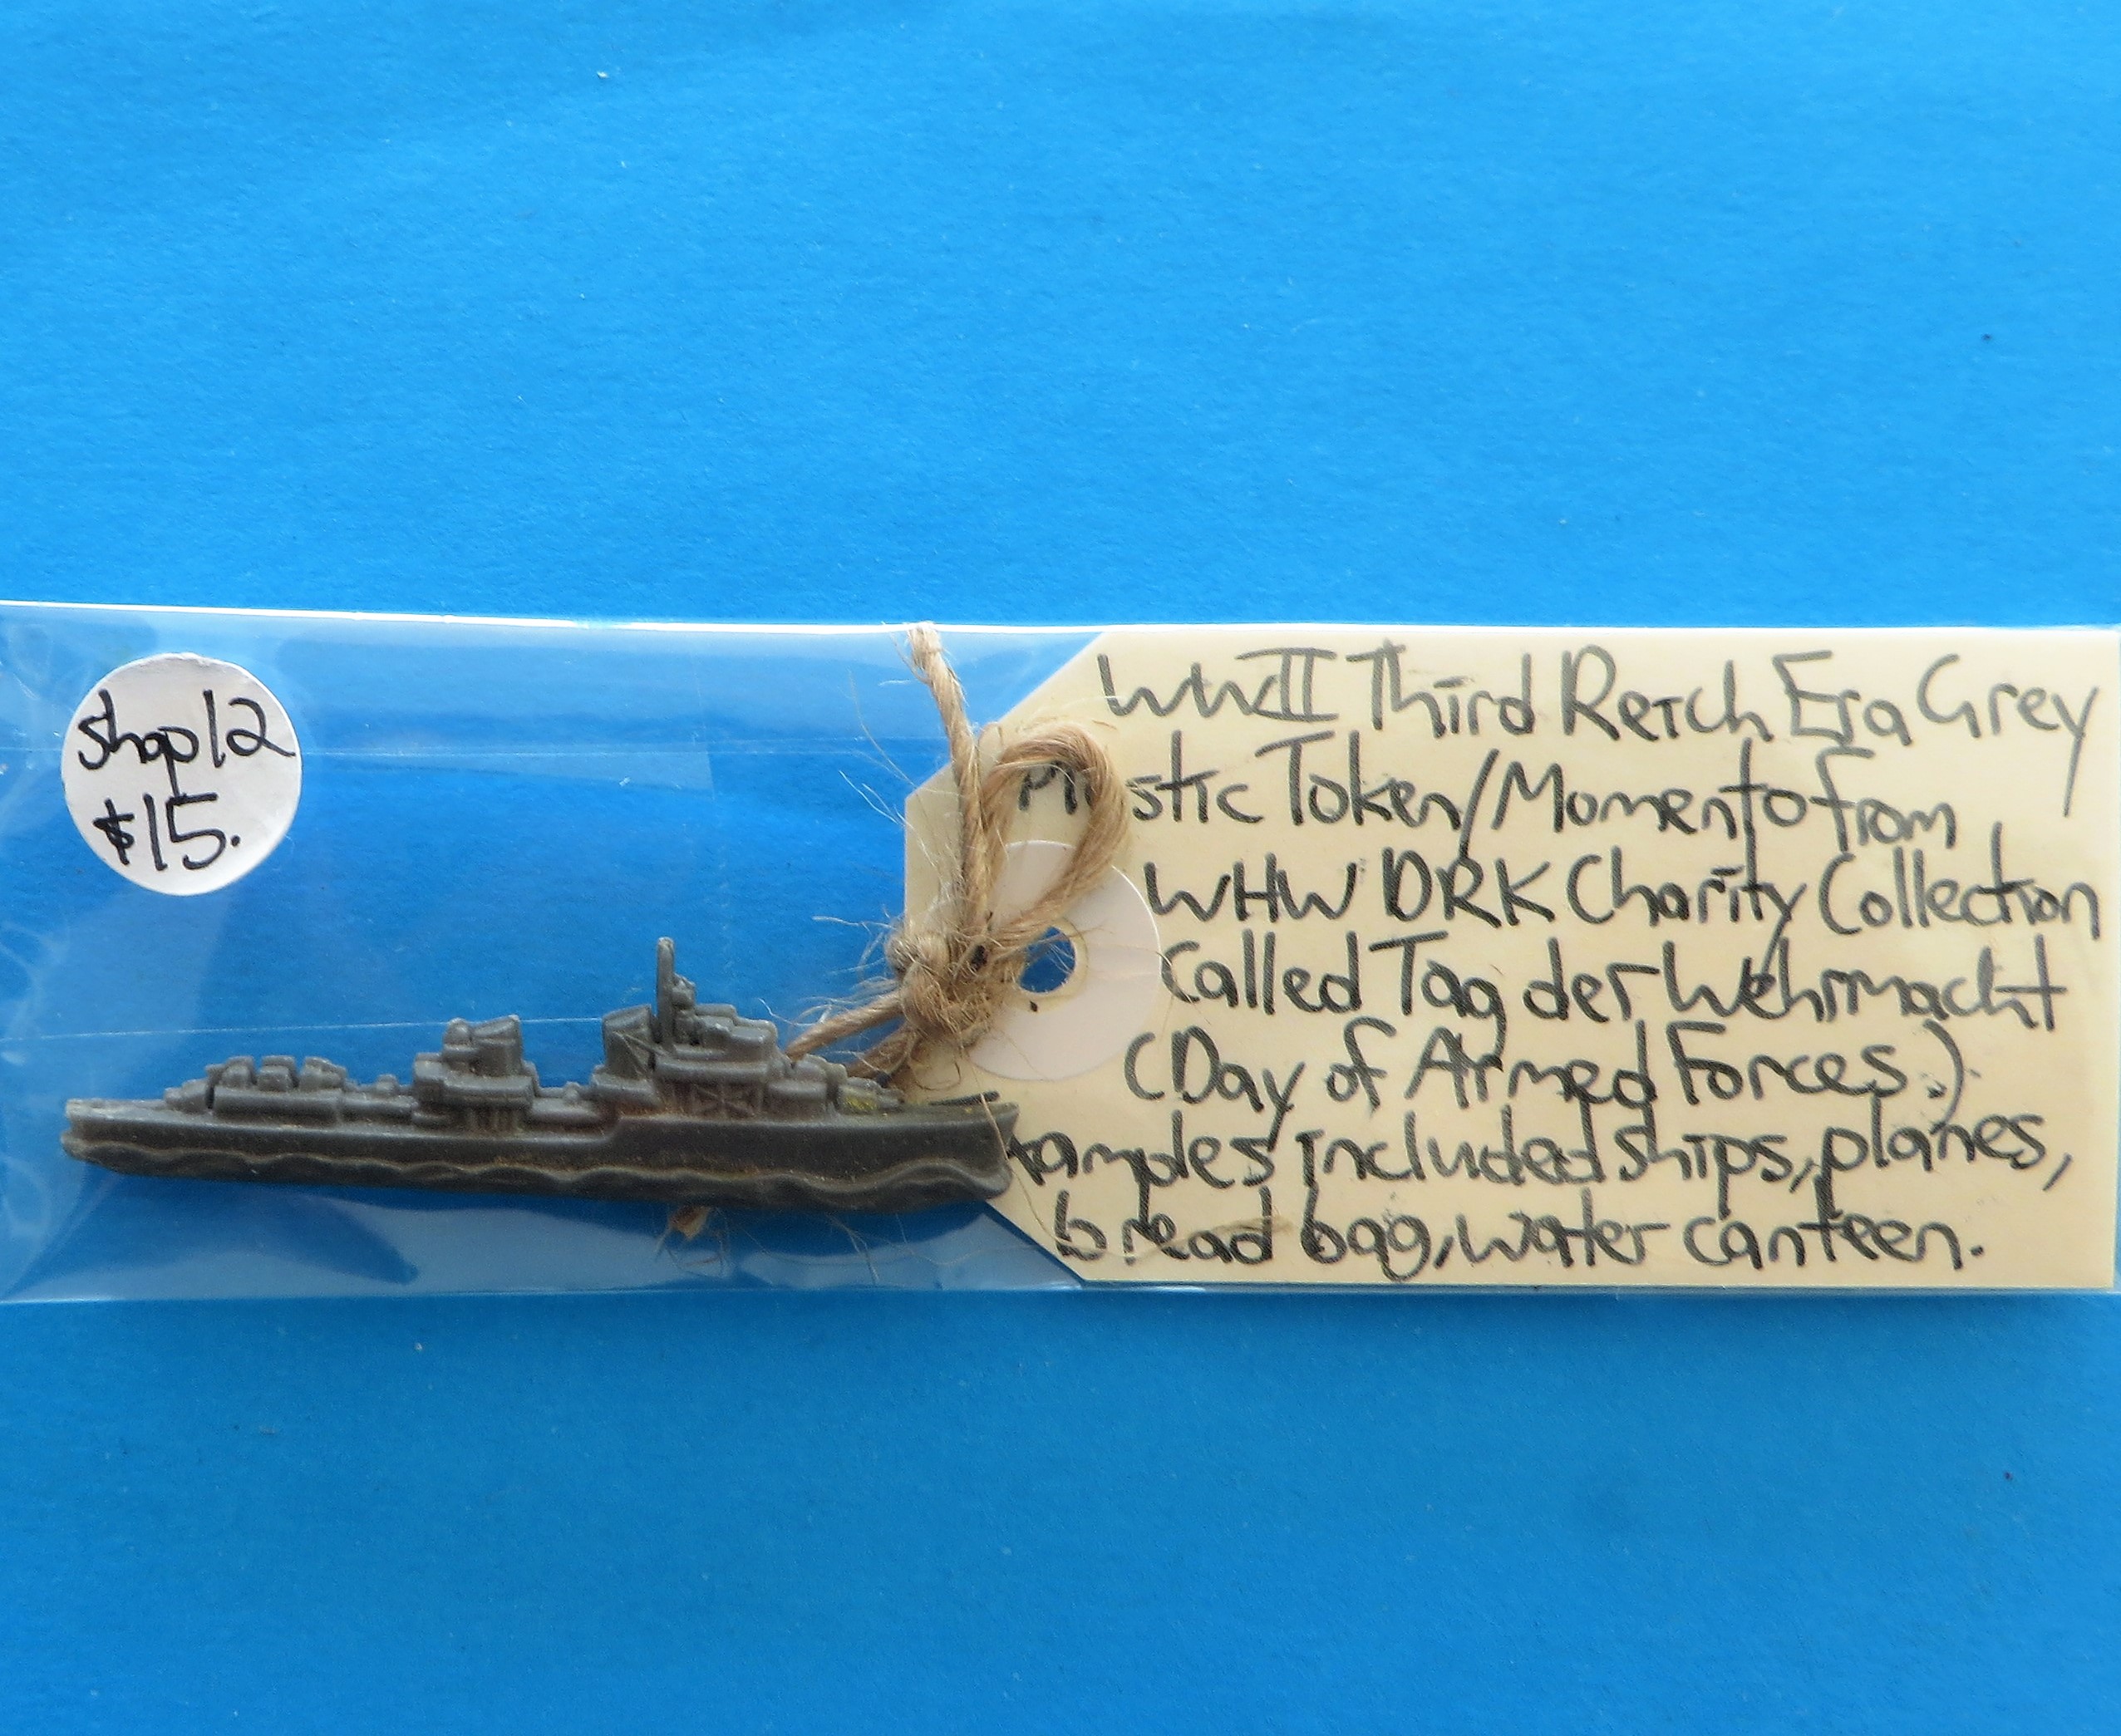 Shop 12
$15.
WWII Third Reich Era Grey
Plastic Token/Momento from
WHW DRK Charity Collection
Called Tag der Wehrmacht
(Day of Armed Forces.)
included ships, planes,
bread bag, water canteen.